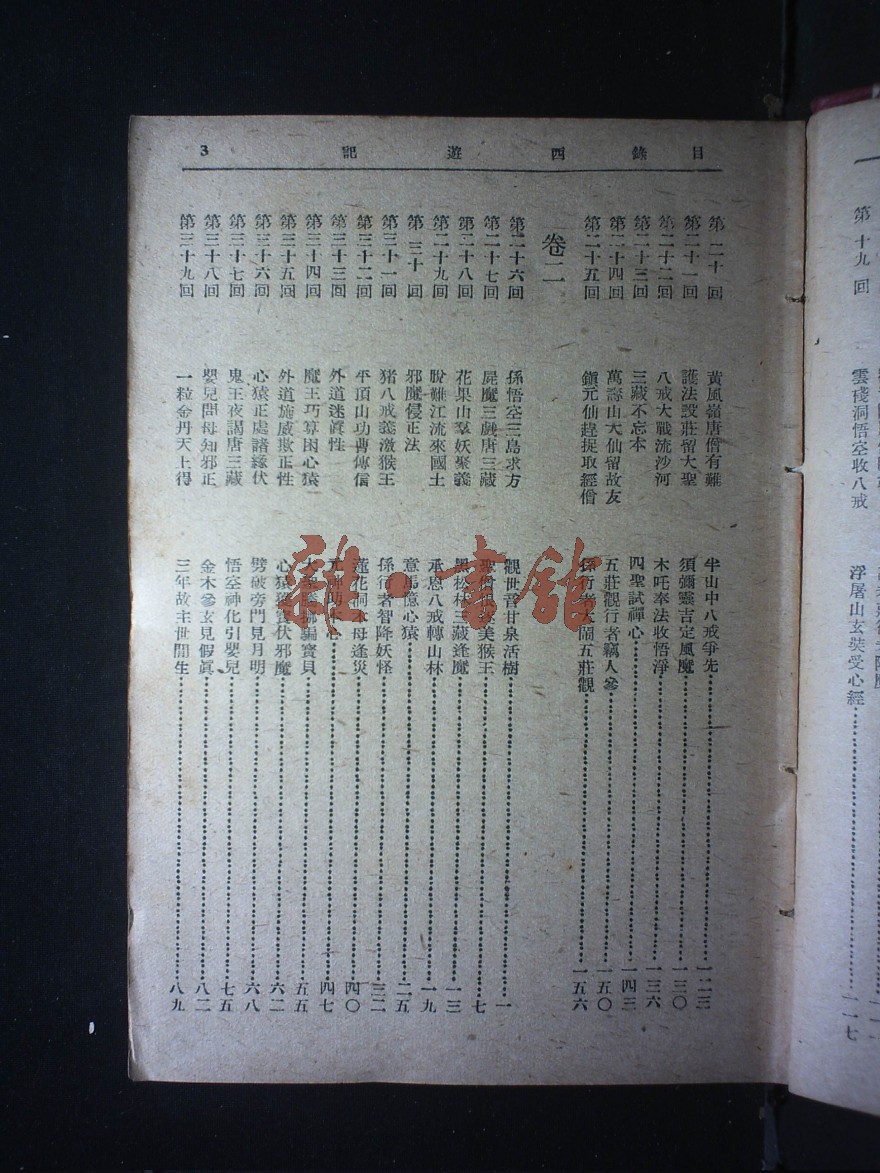 目錄西遊記 3
第十九回 雲棧洞悟空收八戒 浮屠山玄奘受心經 一一七
第二十回 黃風嶺唐僧有難 半山中八戒爭先 一二三
第二十一回 護法設莊留大聖 須彌靈吉定風魔 一三〇
第二十二回 八戒大戰流沙河 木吒奉法收悟淨 一三六
第二十三回 三藏不忘本 四聖試禪心 一四三
第二十四回 萬壽山大仙留故友 五莊觀行者竊人參 一五〇
第二十五回 鎮元仙趕捉取經僧 孫行者大鬧五莊觀 一五六
卷二
第二十六回 孫悟空三島求方 觀世音甘泉活樹 一
第二十七回 屍魔三戲唐三藏 聖僧恨逐美猴王 七
第二十八回 花果山羣妖聚義 黑松林三藏逢魔 一三
第二十九回 脫難江流來國土 承恩八戒轉山林 一九
第三十回 邪魔侵正法 意馬憶心猿 二五
第三十一回 猪八戒義激猴王 孫行者智降妖怪 三二
第三十二回 平頂山功曹傳信 蓮花洞木母逢災 四〇
第三十三回 外道迷眞性 元神助本心 四七
第三十四回 魔王巧算困心猿 大聖騰挪騙寶貝 五五
第三十五回 外道施威欺正性 心猿獲寶伏邪魔 六二
第三十六回 心猿正處諸緣伏 劈破旁門見月明 六八
第三十七回 鬼王夜謁唐三藏 悟空神化引嬰兒 七五
第三十八回 嬰兒問母知邪正 金木參玄見假眞 八二
第三十九回 一粒金丹天上得 三年故主世間生 八九
雜·書館